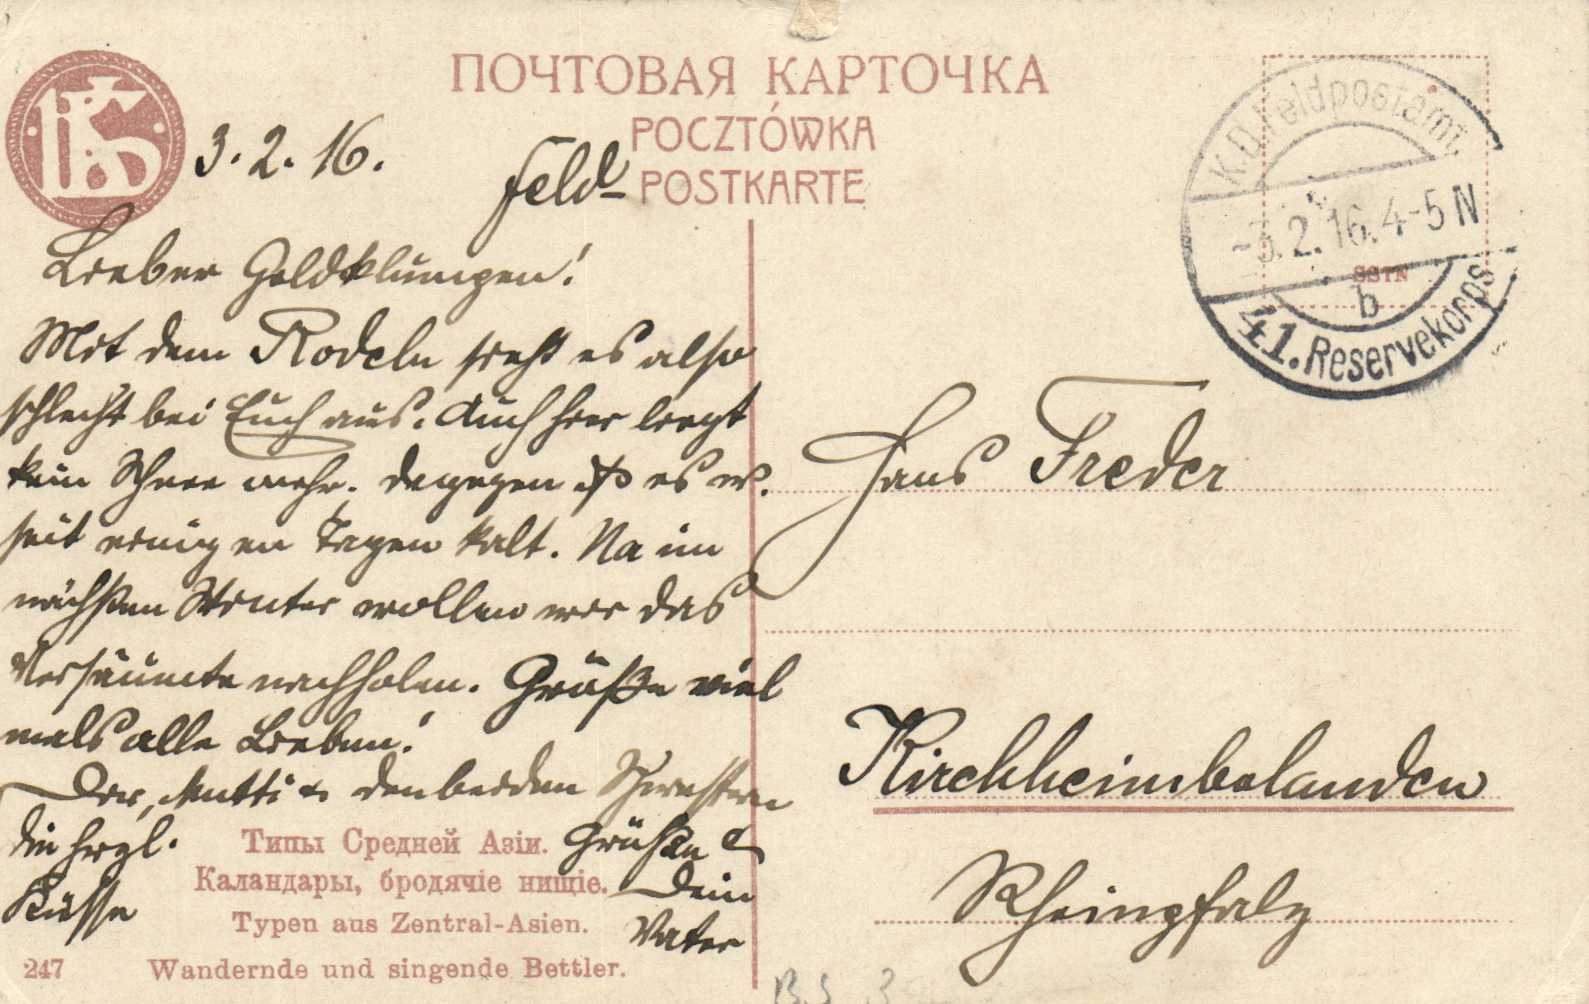 ПОЧТОВАЯ КАРТОЧКА
POCZTÓWKA
Feld-POSTKARTE
3. 2. 16.
K.D. Feldpostamt
-3.2.16.4-5 N
b
41. Reservekorps
Lieber Goldklumpen!
Mit dem Rodeln sieht es also
schlecht bei Euch aus. Auch hier liegt
kein Schnee mehr. Dagegen ist es w.
seit einigen Tagen kalt. Na im
nächsten Winter wollen wir das
Versäumte nachholen. Grüße viel
mals alle Lieben!
Dir, Mutti u. den beiden Schwestern
die herzl. Grüße u.
Küsse Dein
Vater
Hans Freder
Kirchheimbolanden
Rheinpfalz
Типы Средней Азіи.
Каландары, бродячіе нищіе.
Typen aus Zentral-Asien.
247 Wandernde und singende Bettler.